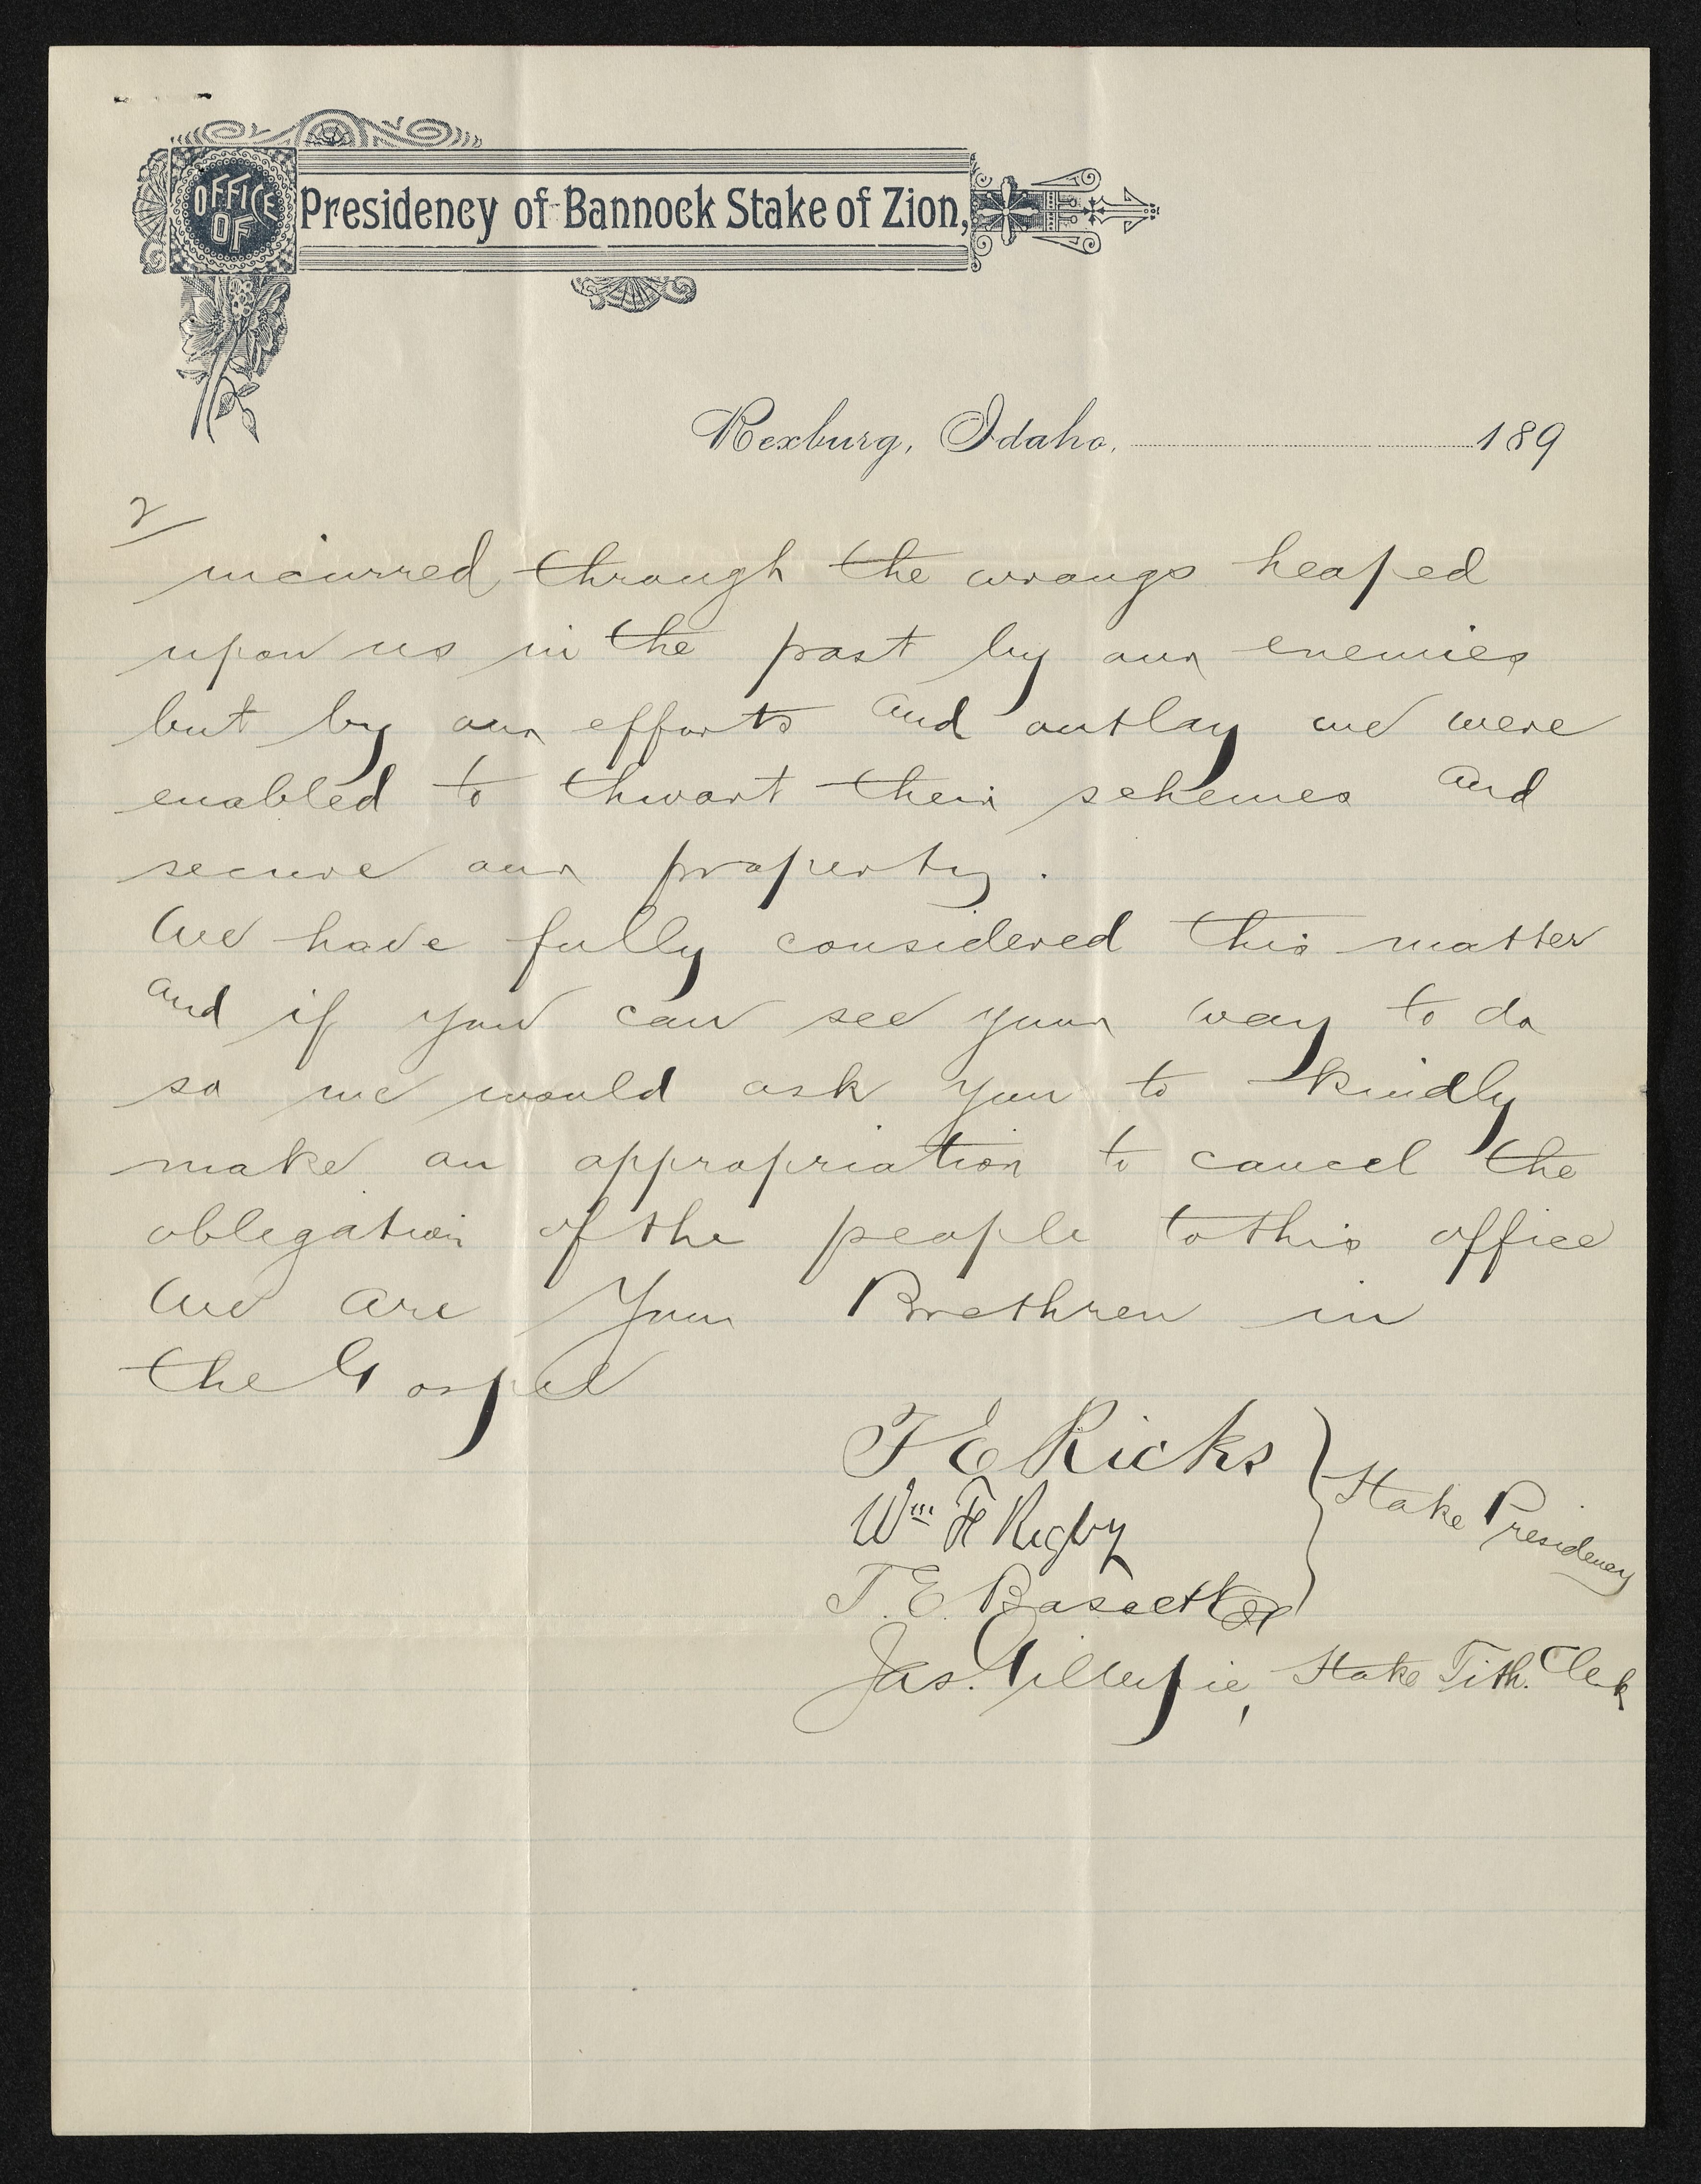 OFFICE
OF
Presidency of Bannock Stake of Zion,
Rexburg, Idaho, 189
2
incurred through the wrongs heaped
upon us in the past by our enemies
but by our efforts and outlay we were
enabled to thwart their schemes and
secure our property.
We have fully considered this matter
and if you can see your way to do
so we would ask you to kindly
make an appropriation to cancel the
obligation of the people to this office
We are Your Brethren in
the Gospel
T E Ricks
Wm F Rigby
T. E. Bassett
Stake Presidency
Jas. Gillespie, Stake Tith. Clerk